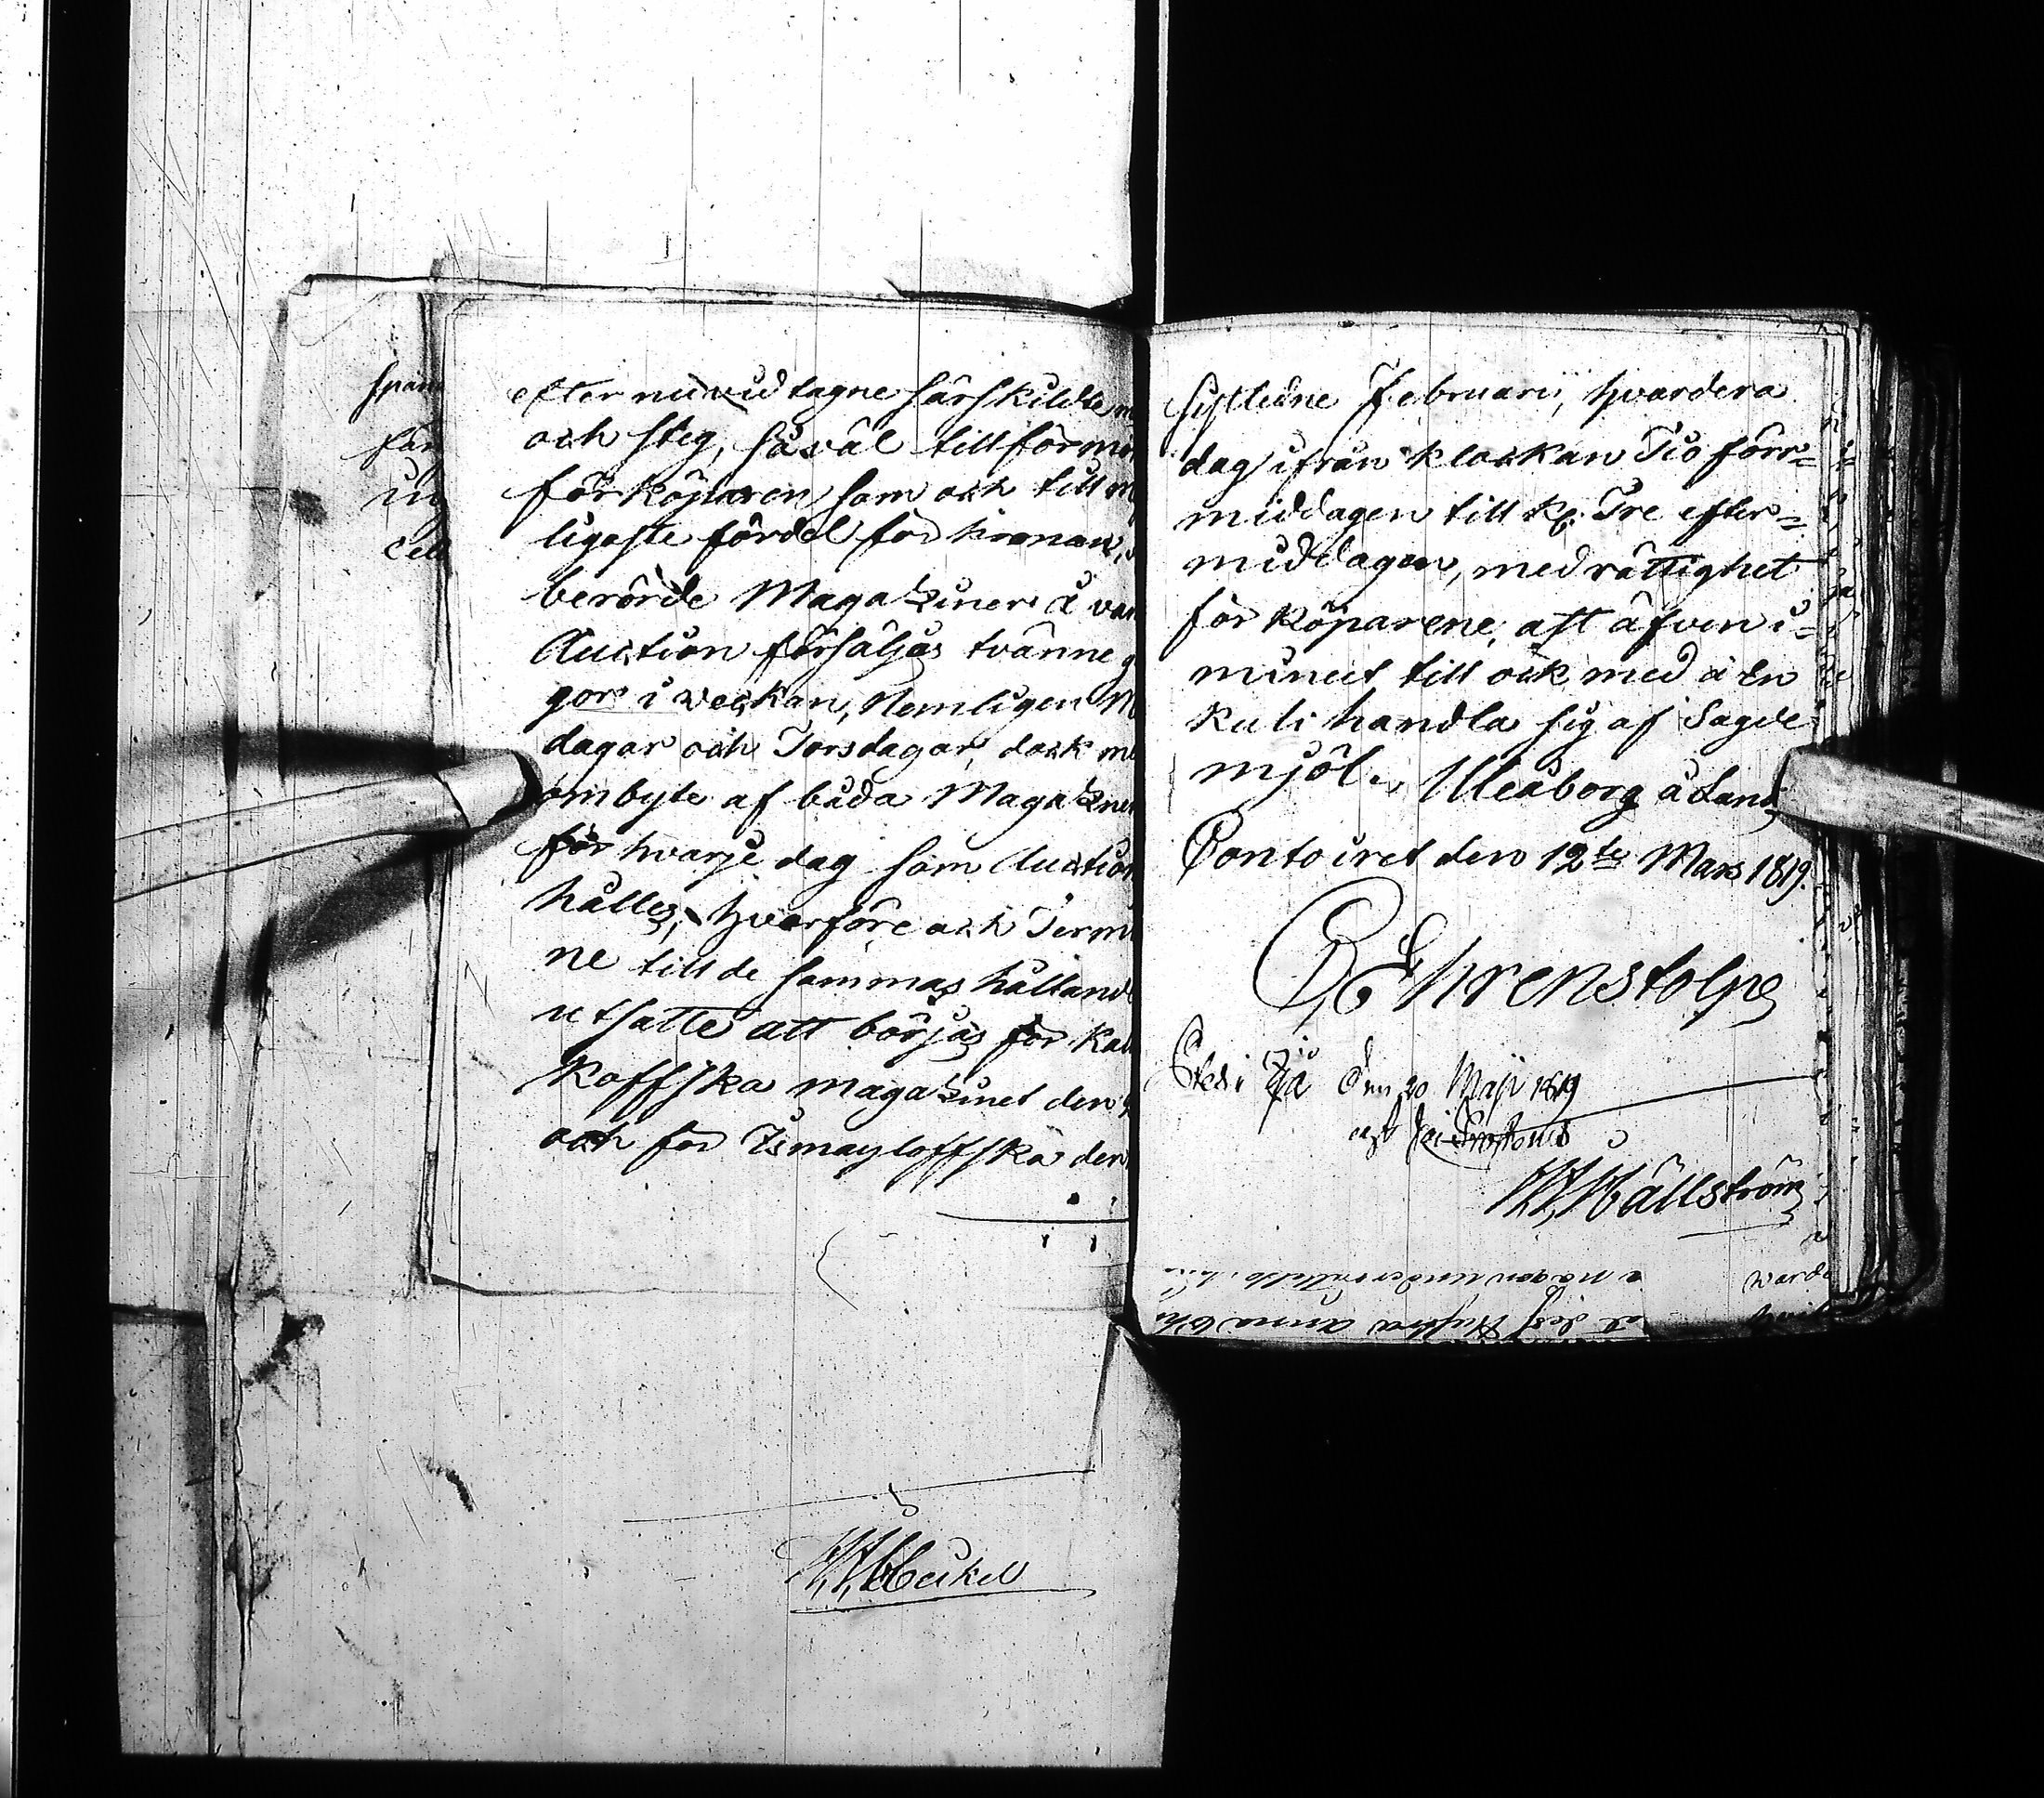 efter nu vidtagne särskildte
och steg, så väl till förmo
för köparen som och till m
ligaste fördel för kronan,
berörde Magaziner å van
Auction försäljas tvänne g
gor i veckan, Nemligen M
dagar och Torsdagar, dock me
ombyte af båda Magazine
för hvarje dag som Auction
hålles, hvarföre och Termi
ne till de sammas hålland
utsatte att börjas för Kal
koffska magazinet den
och för Ismayloffska den
W. Heikel
sistledne Februarii, hvardera
dag ifrån klockan Tio förr=
middagen till kl. Tre efter=
middagen, med rättighet
för köparene, att äfven i=
minut till ock med å en
kuli handla sig af Sagde
mjöl. Uleåborg å Lands
Contoiret den 12te Mars 1819.
Ehrenstolpe
den 20 Maji 1819
Hällström